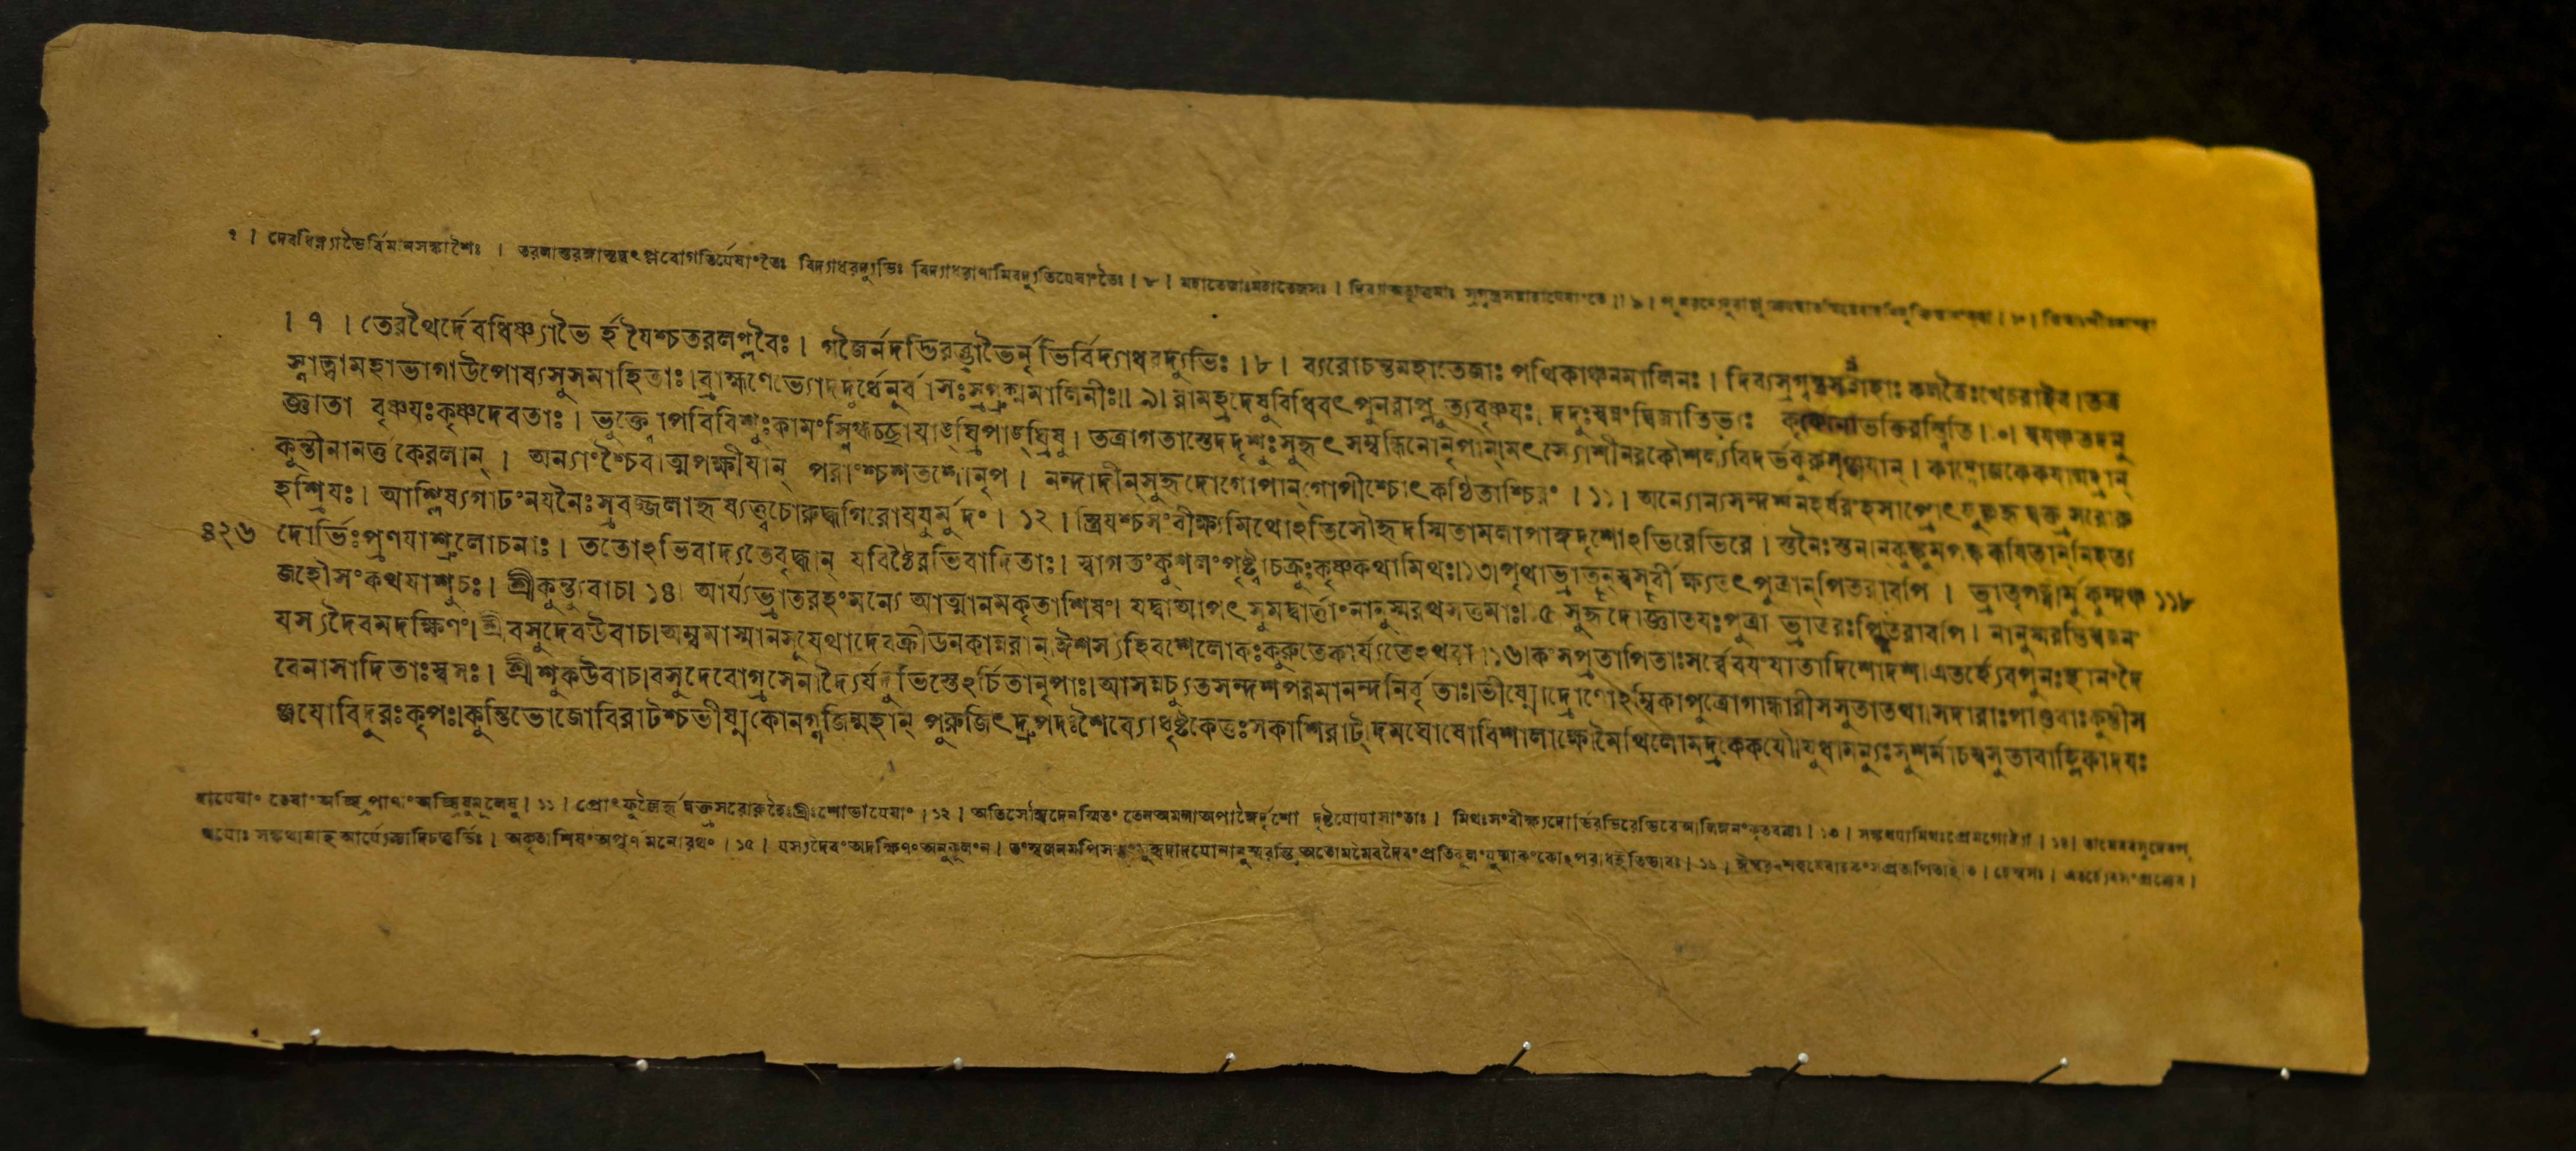 । দেবধিষ্ণ্যাভৈর্বিমানসঙ্কাশৈঃ । তরলাস্তরঙ্গাস্তদ্বৎ প্লবোগতির্যেষাংতৈঃ বিদ্যাধরদ্যুভিঃ বিদ্যাধরাণামিবদ্যুতির্যেষাংতৈঃ । ৮ । মহাতেজাঃমহাতেজসঃ ।
। ৭ । তেরথৈর্দেবধিষ্ণ্যাভৈ র্হযৈশ্চতরলপ্লবৈঃ । গজৈর্নদদ্ভিরভ্রাভৈর্নৃভির্বিদ্যাধরদ্যুভিঃ । ৮ । ব্যরোচন্তমহাতেজাঃ পথিকাঞ্চনমালিনঃ । দিব্যস্রগ্বস্ত্রসন্নাহাঃ কলত্রৈঃখেচরাইব । তত্র
স্নাত্বামহাভাগাউপোষ্যসুসমাহিতাঃ । ব্রাহ্মণেভ্যোদদুর্ধেনুর্বাসঃস্রগ্রুক্মমালিনীঃ ॥ ৯ । রামহ্রদেষুবিধিবৎপুনরাপ্লুত্যবৃষ্ণযঃ । দদুঃস্বন্নংদ্বিজাতিভ্যঃ কৃষ্ণেনোভক্তিরস্ত্বিতি । ০ । স্বযঞ্চতদনু
জ্ঞাতা বৃষ্ণযঃকৃষ্ণদেবতাঃ । ভুক্ত্বোপবিবিশুঃকামংস্নিগ্ধচ্ছাযাঙ্ঘ্রিপাঙ্ঘ্রিষু । তত্রাগতাংস্তেদদৃশুঃসুহৃৎ সম্বন্ধিনোনৃপান্ । মৎস্যোশীনরকৌশল্যবিদর্ভকুরুসৃঞ্জযান্ । কাম্বোজকেকযান্মদ্রান্
কুন্তীনানর্ত্তকেরলান্ । অন্যাংশ্চৈবাত্মপক্ষীযান্ পরাংশ্চশতশোনৃপ । নন্দাদীন্সুহৃদোগোপান্গোপীশ্চোৎকণ্ঠিতাশ্চিরং । ১১ । অন্যোন্যসন্দর্শনহর্ষরংহসাপ্রোৎফুল্লহৃদ্বক্ত্রসরোরু
হশ্রিযঃ । আশ্লিষ্যগাঢংনযনৈঃস্রবজ্জলাহৃষ্যত্ত্বচোরুদ্ধগিরোযযুর্মুদং । ১২ । স্ত্রিযশ্চসংবীক্ষ্যমিথোঽতিসৌহৃদস্মিতামলাপাঙ্গদৃশোঽভিরেভিরে । স্তনৈঃস্তনান্কুঙ্কুমপঙ্করূষিতান্নিহত্য
৪২৬ দোর্ভিঃপ্রণযাশ্রুলোচনাঃ । ততোঽভিবাদ্যতেবৃদ্ধান্ যবিষ্ঠৈরভিবাদিতাঃ । স্বাগতংকুশলংপৃষ্ট্বাচক্রুঃকৃষ্ণকথামিথঃ । ১৩ । পৃথাভ্রাতৄন্স্বসৄর্বীক্ষ্যতৎপুত্রান্পিতরাবপি । ভ্রাতৃপত্নীর্মুকুন্দঞ্চ ১১৮
জহৌসংকথযাশুচঃ । শ্রীকুন্ত্যুবাচ । ১৪ । আর্য্যভ্রাতরহংমন্যে আত্মানমকৃতাশিষং । যদ্বাআপৎ সুমদ্বার্ত্তাংনানুস্মরথসত্তমাঃ । ৫ সুহৃদোজ্ঞাতযঃপুত্রা ভ্রাতরঃপিতরাবপি । নানুস্মরন্তিস্বজনং
যস্যদৈবমদক্ষিণং । শ্রীবসুদেবউবাচ । অম্বমাস্মানসূযেথাদেবক্রীডনকান্নরান্ । ঈশস্যহিবশেলোকঃকুরুতেকার্য্যতেঽথবা । ১৬ । কংসপ্রতাপিতাঃসর্ব্বেবযংযাতাদিশোদশ । এতর্হ্যেবপুনঃস্থানংদৈ
বেনাসাদিতাঃস্বসঃ । শ্রীশুকউবাচ । বসুদেবোগ্রসেনাদ্যৈর্যদুভিস্তেঽর্চিতানৃপাঃ । আসন্নচ্যুতসন্দর্শপরমানন্দনির্বৃতাঃ । ভীষ্মোদ্রোণোঽম্বিকাপুত্রোগান্ধারীসসুতাতথা । সদারাঃপাণ্ডবাঃকুন্তীস
ঞ্জযোবিদুরঃকৃপঃ । কুন্তিভোজোবিরাটশ্চভীষ্মকোনগ্নজিন্মহান্ পুরুজিৎদ্রুপদঃশৈব্যোধৃষ্টকেতুঃসকাশিরাট্ । দমঘোষোবিশালাক্ষোমৈথিলোমদ্রকেকযৌ । যুধামন্যুঃসুশর্মাচসসুতাবাহ্লিকাদযঃ
তেষাংঅঙ্ঘ্রিপাণাংঅঙ্ঘ্রিষুমূলেষু । ১১ । প্রোৎফুল্লৈর্হৃদ্বক্ত্রসরোরুহৈঃশ্রীঃশোভাযেষাং । ১২ । অতিসৌহৃদেনস্মিতং তেনঅমলাঅপাঙ্গৈর্দৃশো দৃষ্টযোযাসাংতাঃ । মিথঃসংবীক্ষ্যদোর্ভিরভিরেভিরেআলিঙ্গনংকৃতবত্যঃ । ১৩ ।
অকৃতাশিষংঅপূর্ণমনোরথং । ১৫ । যস্যদৈবংঅদক্ষিণংঅনুকূলংন ।